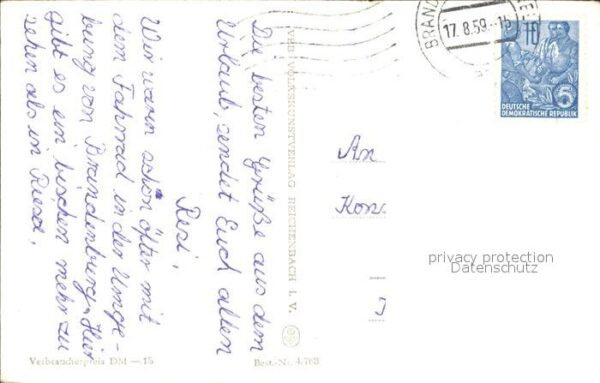 Die besten Grüße aus dem
Urlaub, sendet Euch allen
Resi.
Wir waren schön öfter mit
dem Fahrrad in der Umge-
bung von Brandenburg. Hier
gibt es ein bischen mehr zu
sehen als in Riesa.
Verbraucherpreis DM — 15
Best.-Nr. 4/763
VEB VOLKSKUNSTVERLAG REICHENBACH I. V.
17.8.59.-15
10
5
DEUTSCHE
DEMOKRATISCHE REPUBLIK
An
Kon
privacy protection
Datenschutz